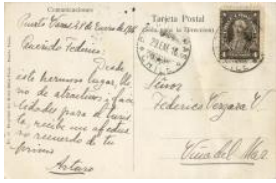 Comunicaciones
Tarjeta Postal
Punta Arenas, 21 de Enero de 1918
Querido Federico:
Desde
este hermoso lugar, lle
no de atractivos i
para el turis
ta, recibe un afectuo
so recuerdo de tu
primo
Arturo
Señor
Federico Vergara V.
Viña del Mar
CHILE